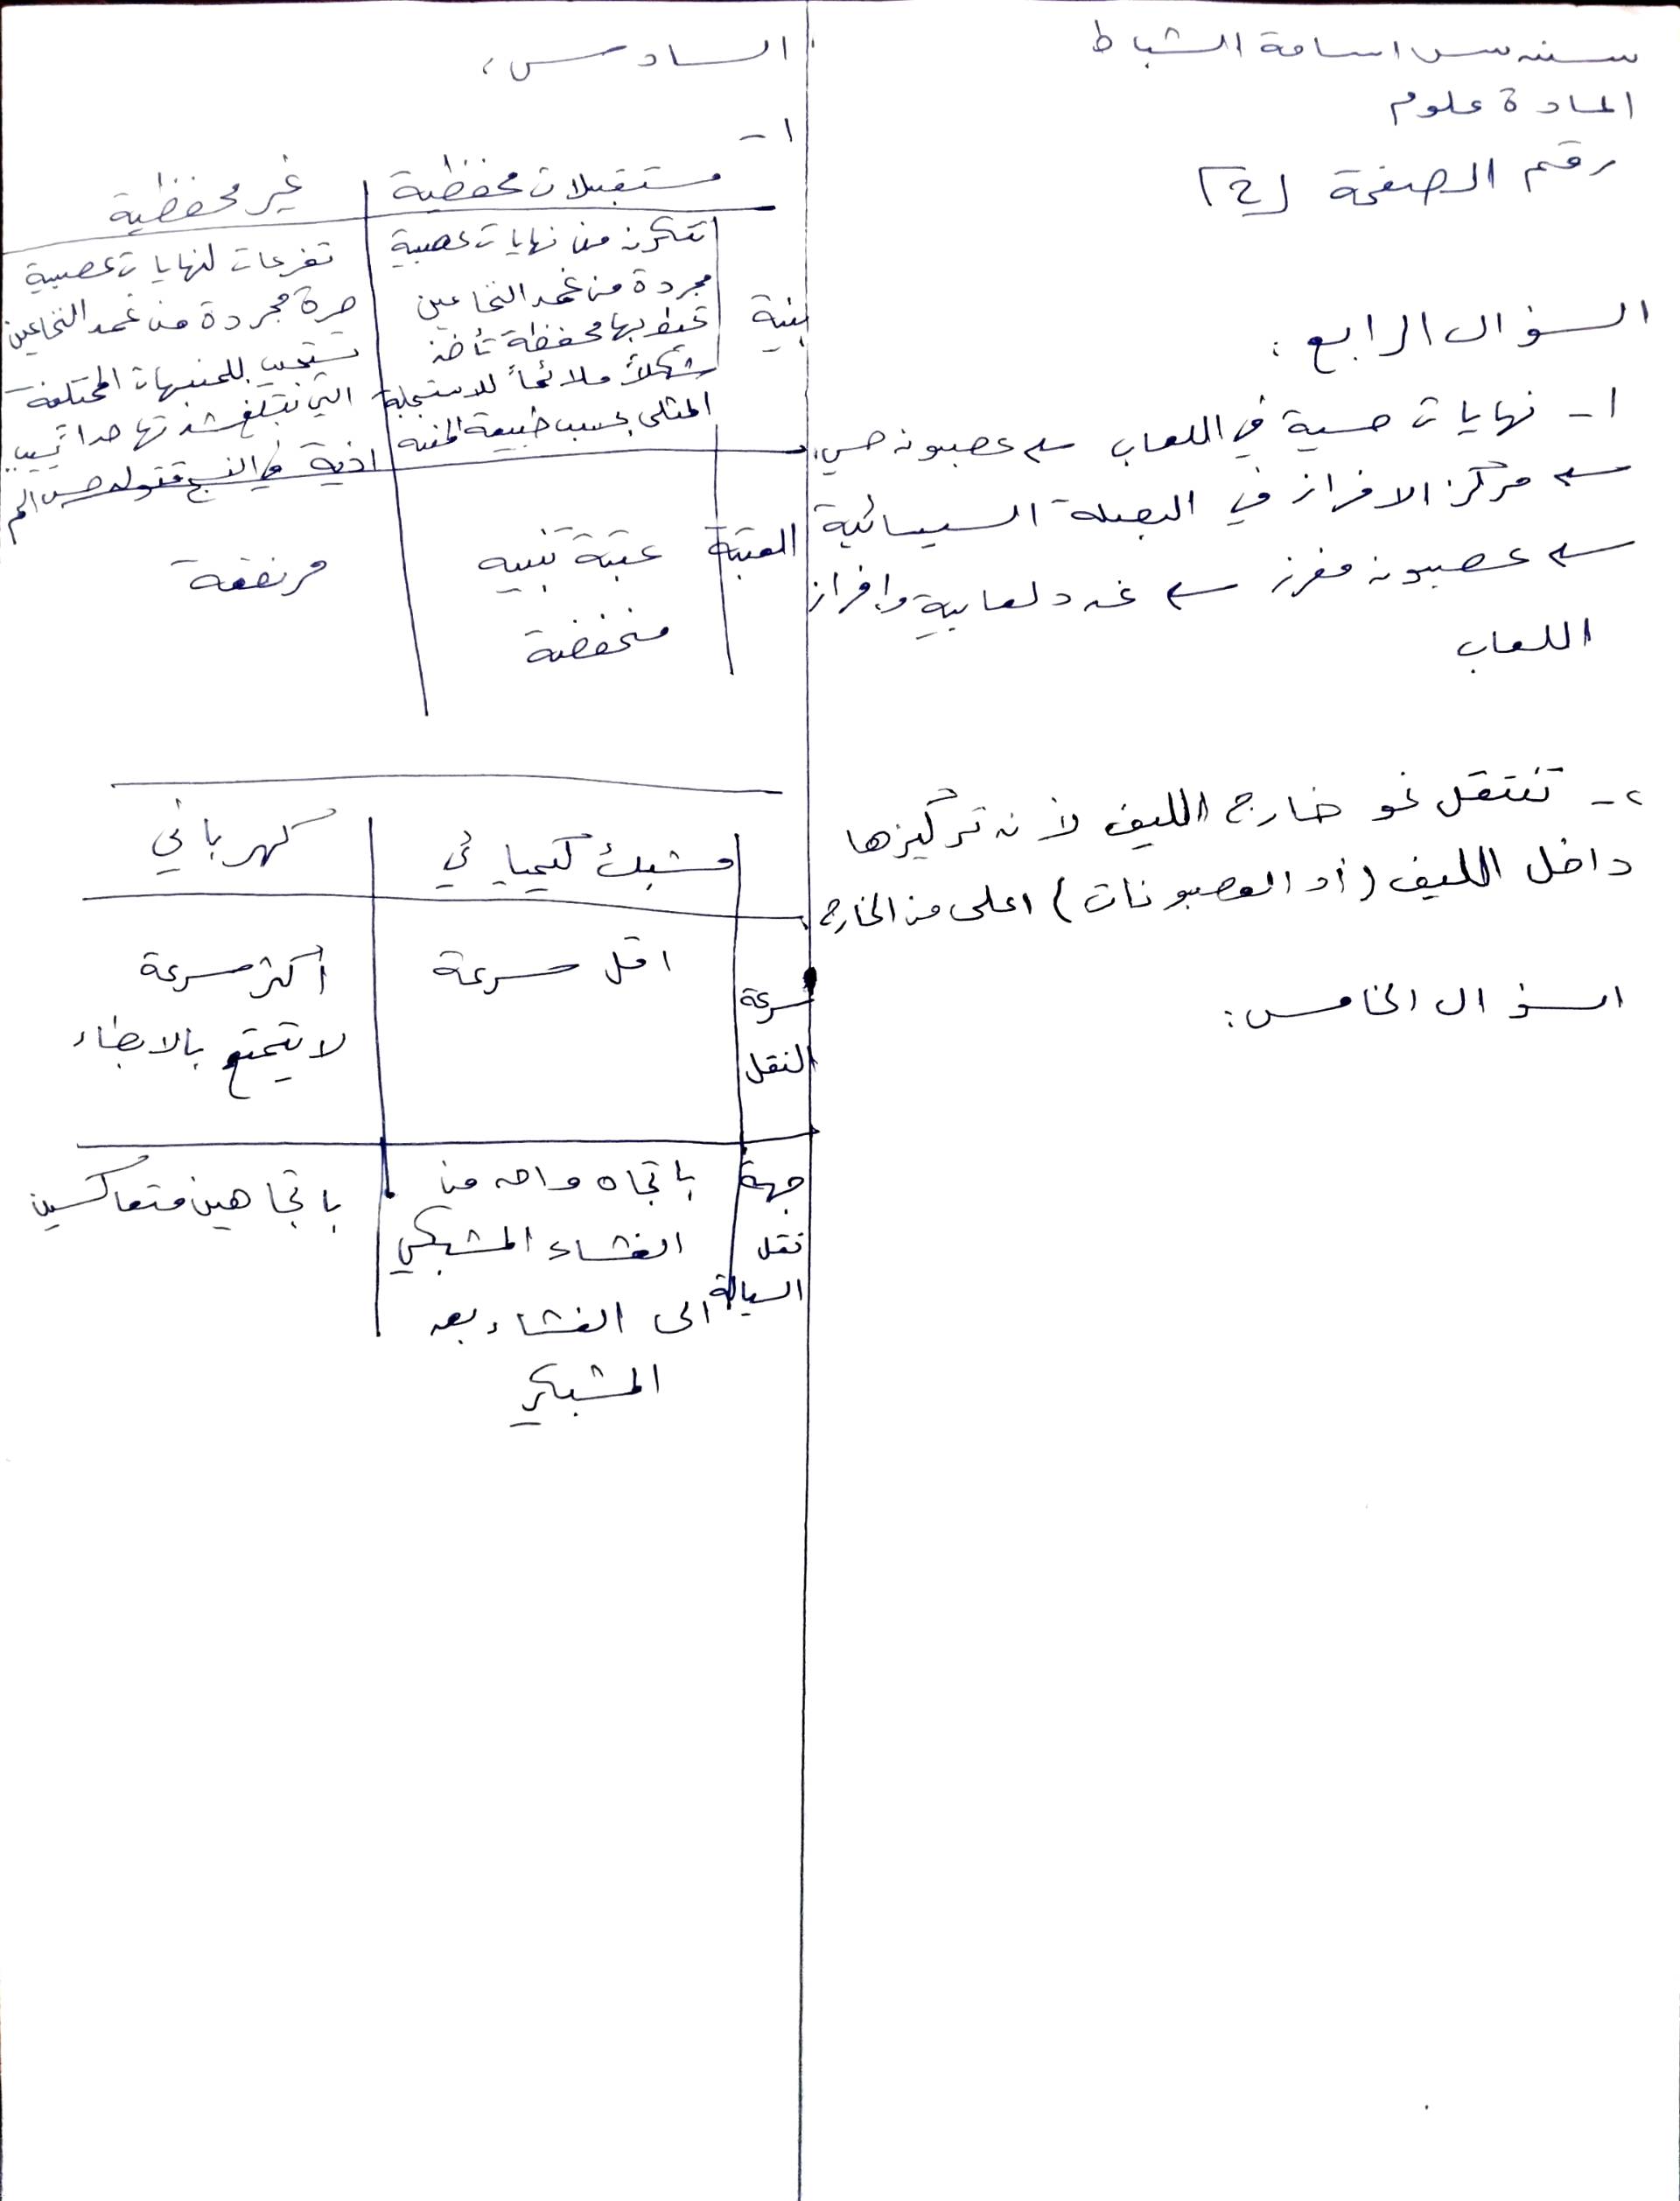 سندس اسامة الشباط
المادة علوم
رقم الصفحة (2)
السؤال الرابع:
1- نهايات حسية في اللعاب ← عصبون حسي
← مركز الافراز في البصلة السيسائية
← عصبون مفرز ← غدد لعابية وإفراز
اللعاب
2- تنتقل نحو خارج الليف لأن تركيزها
داخل الليف (أو العصبونات) اعلى من الخارج.
السؤال الخامس:
السادس:
1-
مستقبلات محفظية | غير محفظية
بنية
تتكون من نهايات عصبية
مجردة من غمد النخاعين
تحيط بها محفظة تأخذ
شكلاً ملائماً للاستجابة
المثلى بحسب طبيعة المنبه
تفرعات لنهايات عصبية
حرة مجردة من غمد النخاعين
تستجيب للمنبهات المختلفة
التي تبلغ شدتها حداً يسبب
اذية في النسج فتولد حس الم
العتبة | عتبة تنبيه | مرتفعة
منخفضة
مشبك كيميائي | كهربائي
سرعة | اقل سرعة | أكثر سرعة
النقل | لا يتمتع بالابطاء
جهة | باتجاه واحد من | باتجاهين متعاكسين
نقل | الغشاء المشبكي
السيالة | الى الغشاء بعد
المشبكي